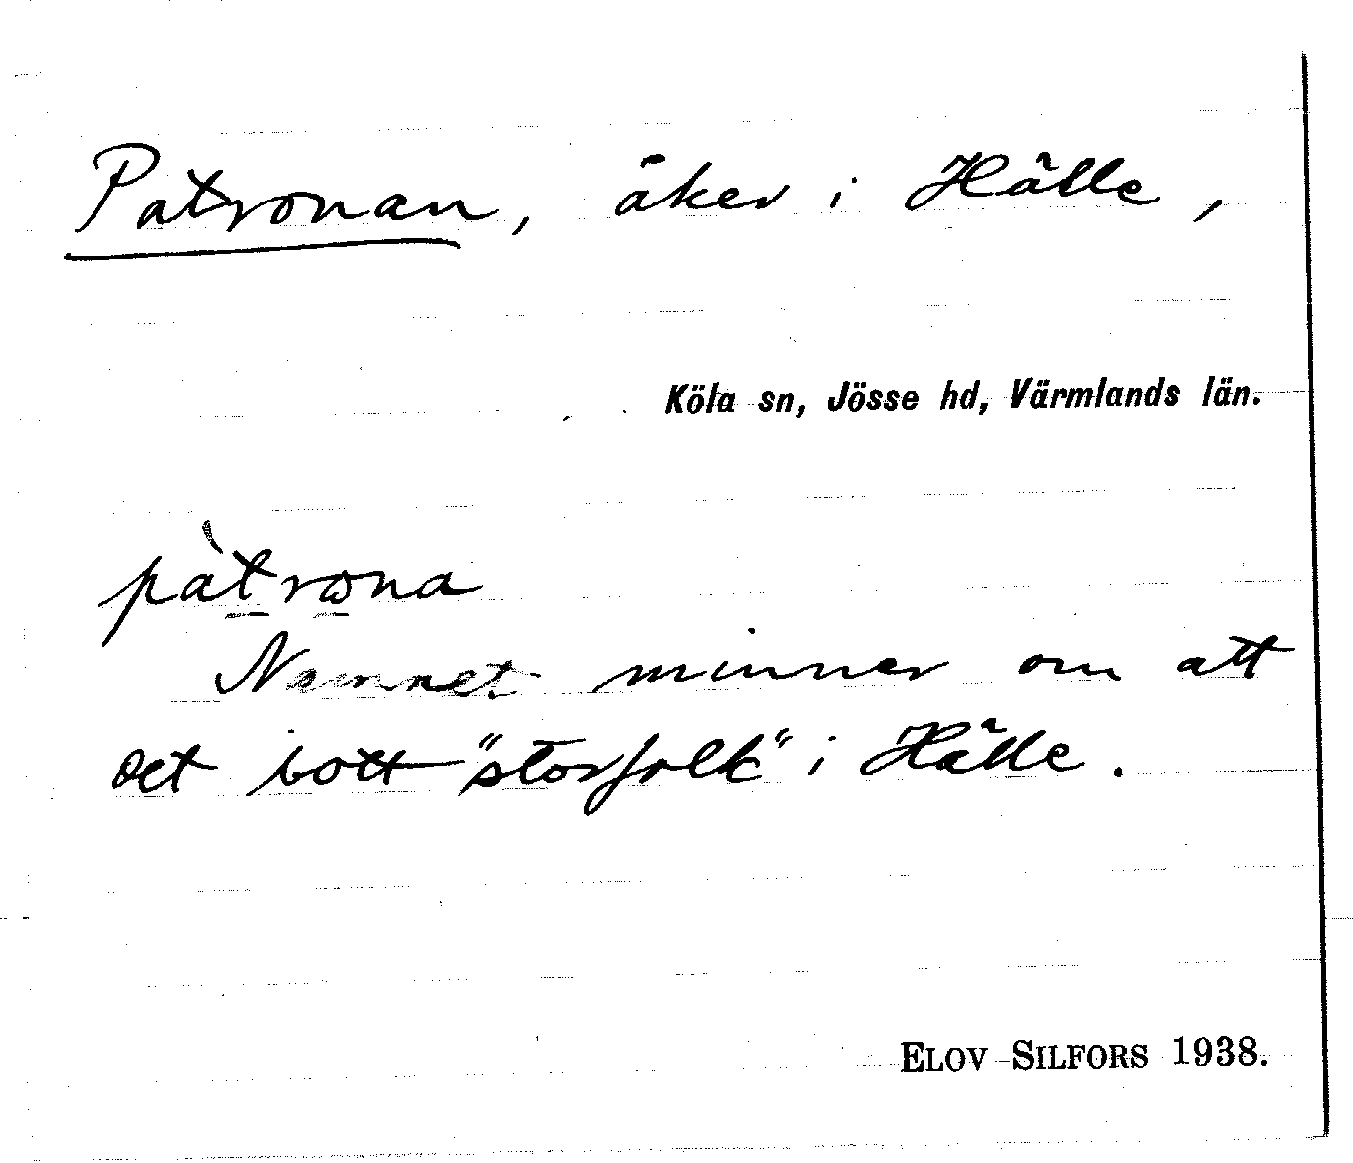 Patronan, åker i Hålle,
Köla sn, Jösse hd, Värmlands län.
pàtrona
Namnet minner om att
det bott "storfolk" i Hålle.
ELOV SILFORS 1938.